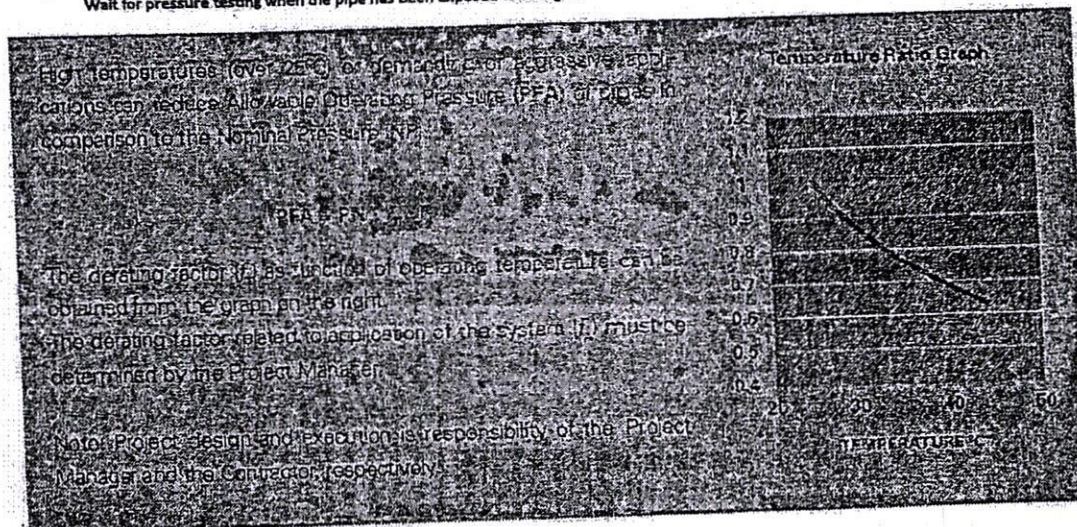 Wait for pressure testing when the pipe has been exposed
High temperatures (over 25°C) or demanding or aggressive appli-
cations can reduce Allowable Operating Pressure (PFA) of pipes in
comparison to the Nominal Pressure NP
PFA = PN
The derating factor (f) as function of operating temperature can be
obtained from the graph on the right.
The derating factor related to application of the system (f) must be
determined by the Project Manager
Note: Project design and execution is responsibility of the Project
Manager and the Contractor respectively
Temperature Ratio Graph
1.2
1.1
1
0.9
0.8
0.7
0.6
0.5
0.4
20 30 40 50
TEMPERATURE °C